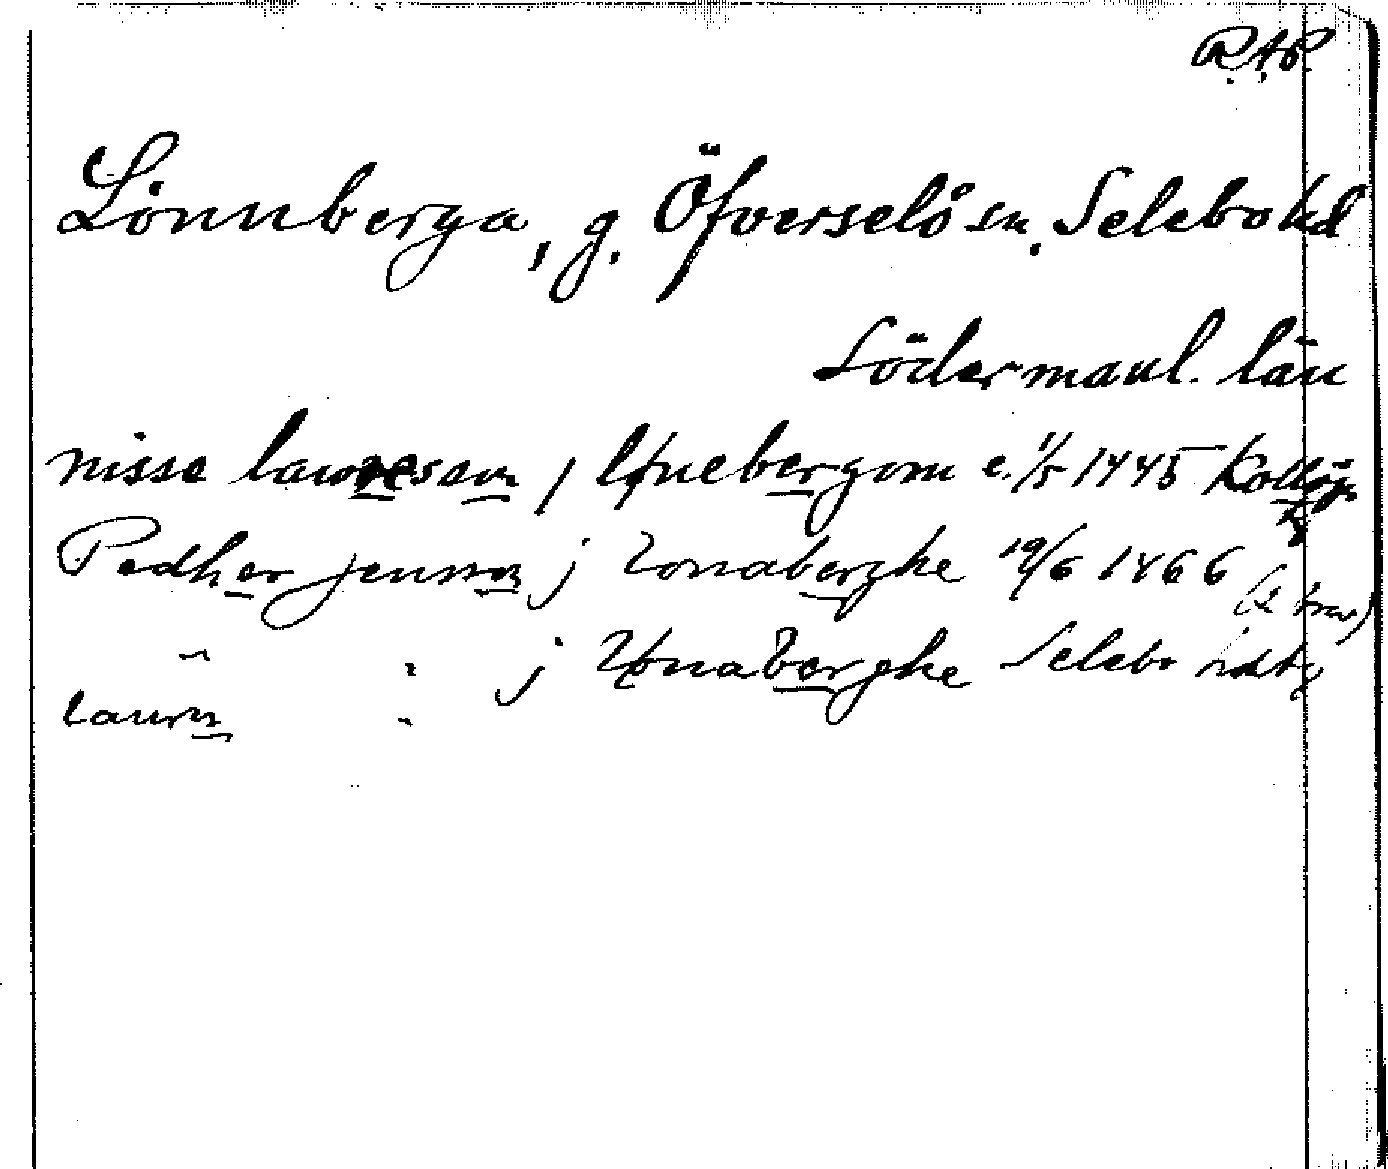 R.A.P.
Lönnberga, g. Öfverselö sn. Selebo hd
Södermanl. län
nisse laurensson j lønebergom e. 1/5 1445
Pedher jensson j lonaberghe 19/6 1466 (2 brev)
" : j lønaberghe Selebo hdt
laurn "